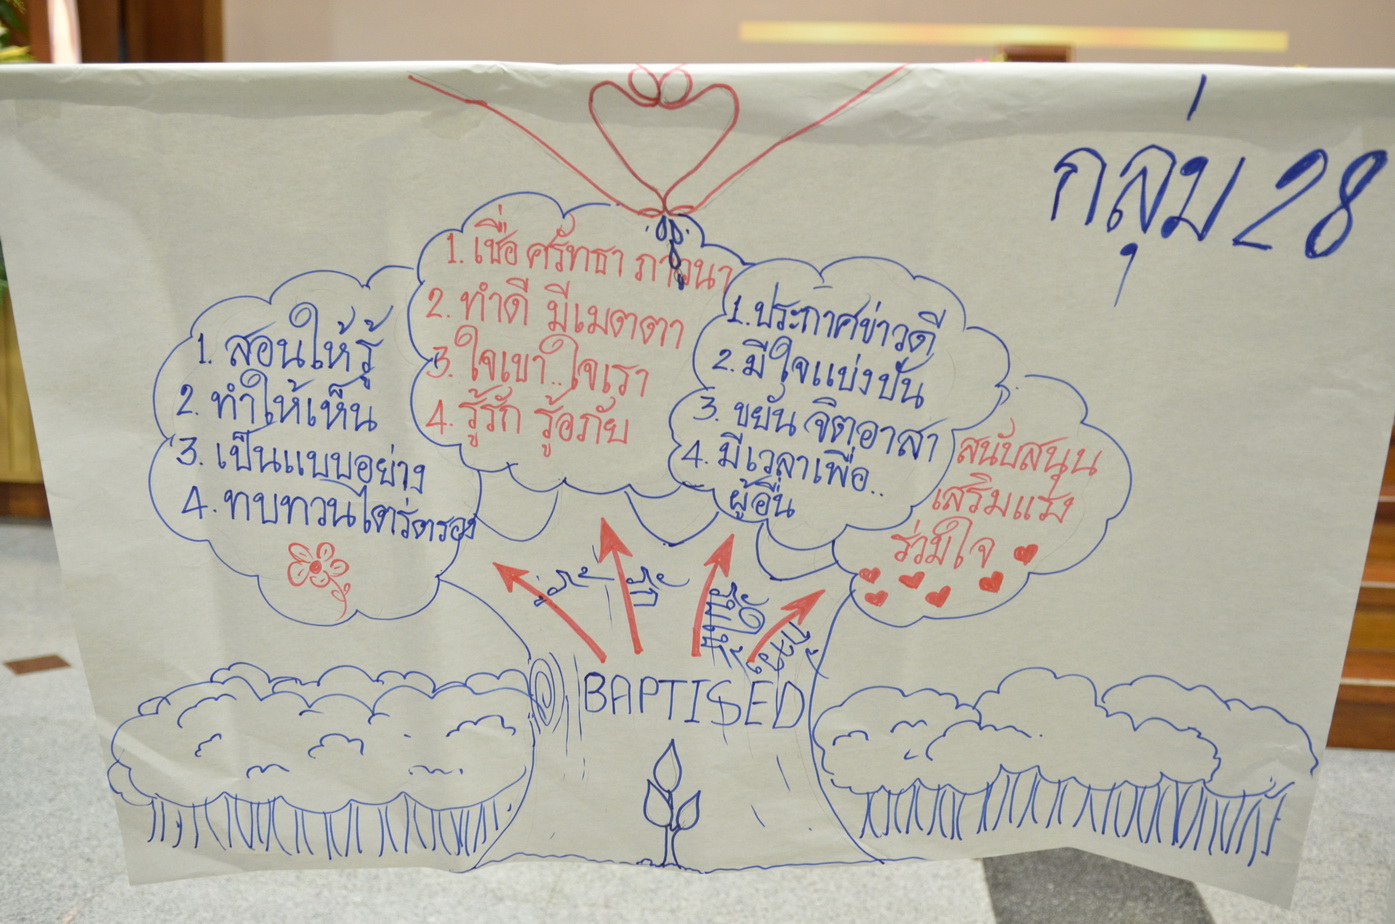 กลุ่ม 28
1. สอนให้รู้
2. ทำให้เห็น
3. เป็นแบบอย่าง
4. ทบทวนไตร่ตรอง
1. เชื่อ ศรัทธา ภาวนา
2. ทำดี มีเมตตา
3. ใจเขา..ใจเรา
4. รู้รัก รู้อภัย
1. ประกาศข่าวดี
2. มีใจแบ่งปัน
3. ขยัน จิตอาสา
4. มีเวลาเพื่อ..
ผู้อื่น
สนับสนุน
เสริมแรง
ร่วมใจ
BAPTISED